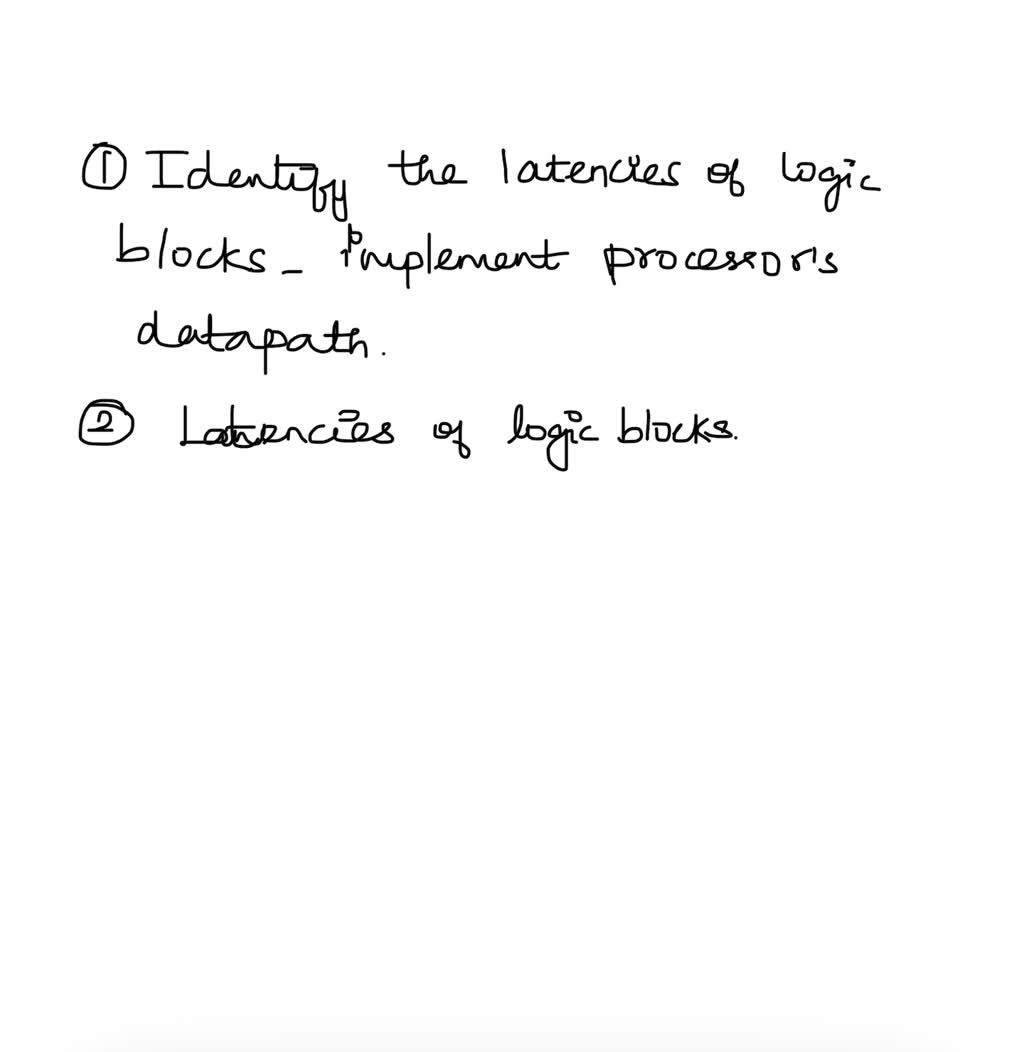 ① Identify the latencies of logic
blocks - implement processor's
datapath.
② Latencies of logic blocks.